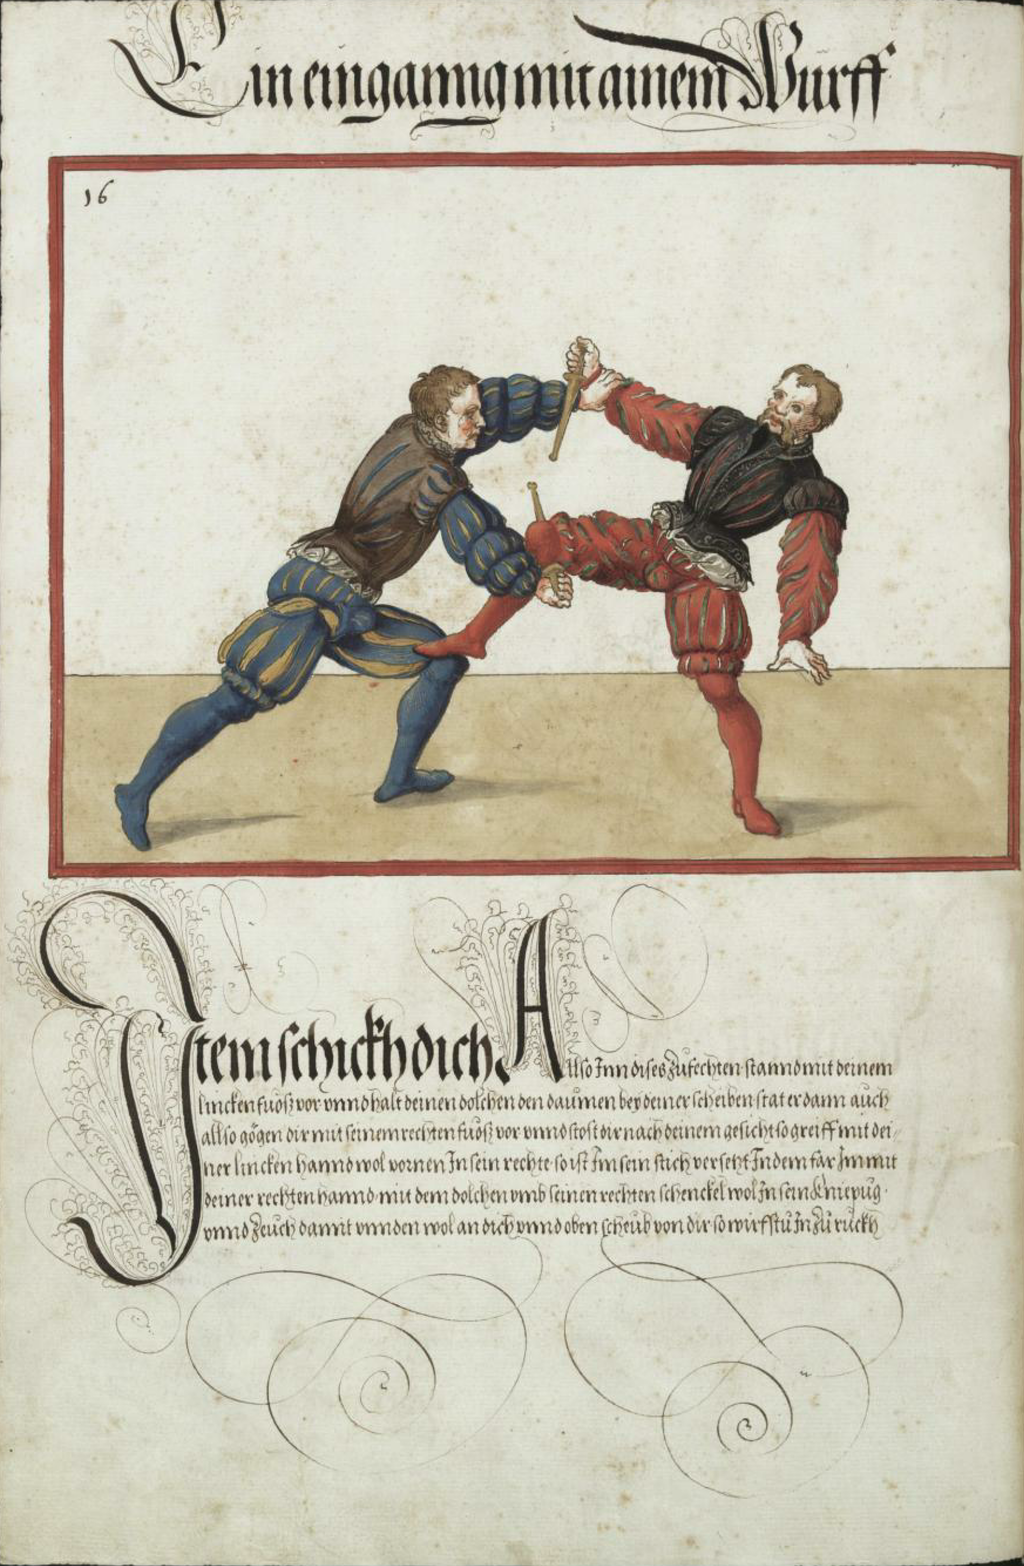 Ein einganng mit ainem Wurff
16
Item schickh dich Allso Inn dises zufechten stannd mit deinem
lincken fuosz vor vnnd halt deinen dolchen den daumen bey deiner scheiben stat er dann auch
allso gögen dir mit seinem rechten fuosz vor vnnd stost dir nach deinem gesicht so greiff mit dei
ner lincken hannd wol vornen In sein rechte so ist Im sein stich versetzt Indem far Im mit
deiner rechten hannd mit dem dolchen vmb seinen rechten schenckel wol In sein kniepüg
vnnd zeuch damit vnnden wol an dich vnnd oben scheub von dir so wirfstu In zu ruckh